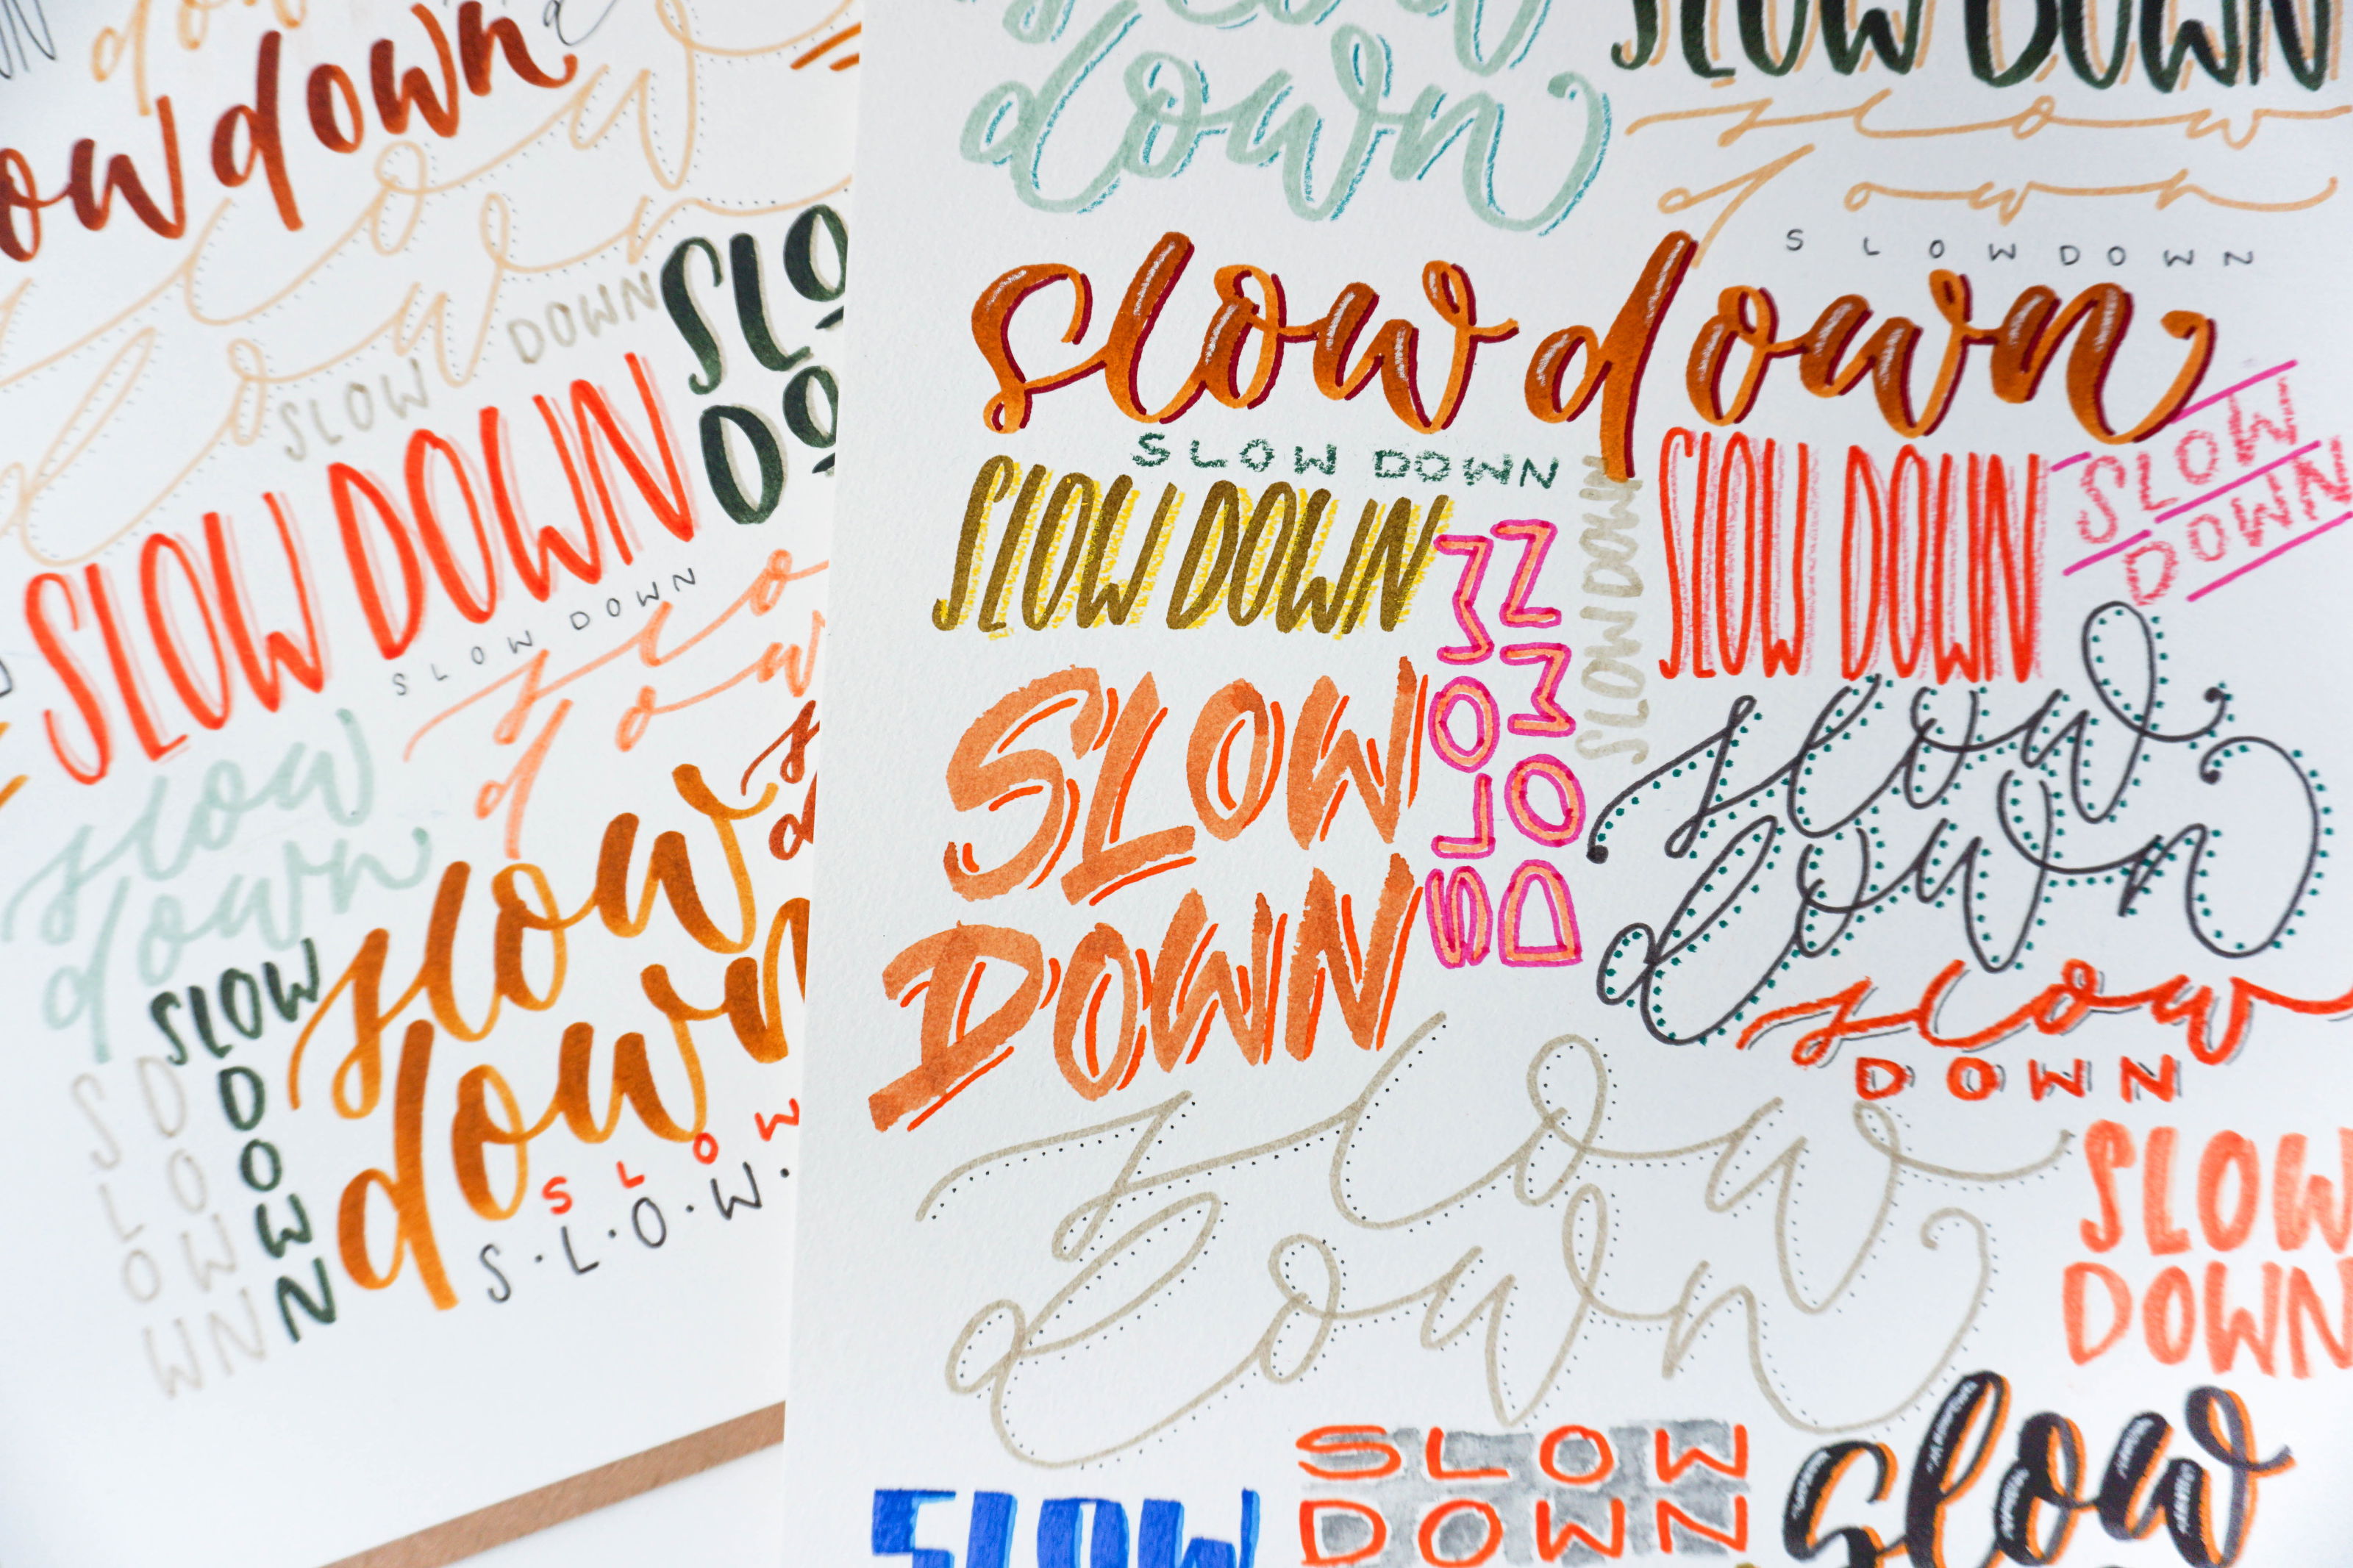 down
slow
down
SLOW
DOWN
SLOW DOWN
SLOW DOWN
slow
down
SLOW
DOWN
slow
down
S·L·O·W·
SLOW
down
SLOW DOWN
slow
down
SLOW DOWN
slow down
SLOW DOWN
SLOW DOWN
SLOW
DOWN
SLOW DOWN
SLOW DOWN
SLOW
DOWN
SLOW
DOWN
slow
down
slow
DOWN
slow
down
SLOW
DOWN
SLOW
DOWN
SLOW
slow